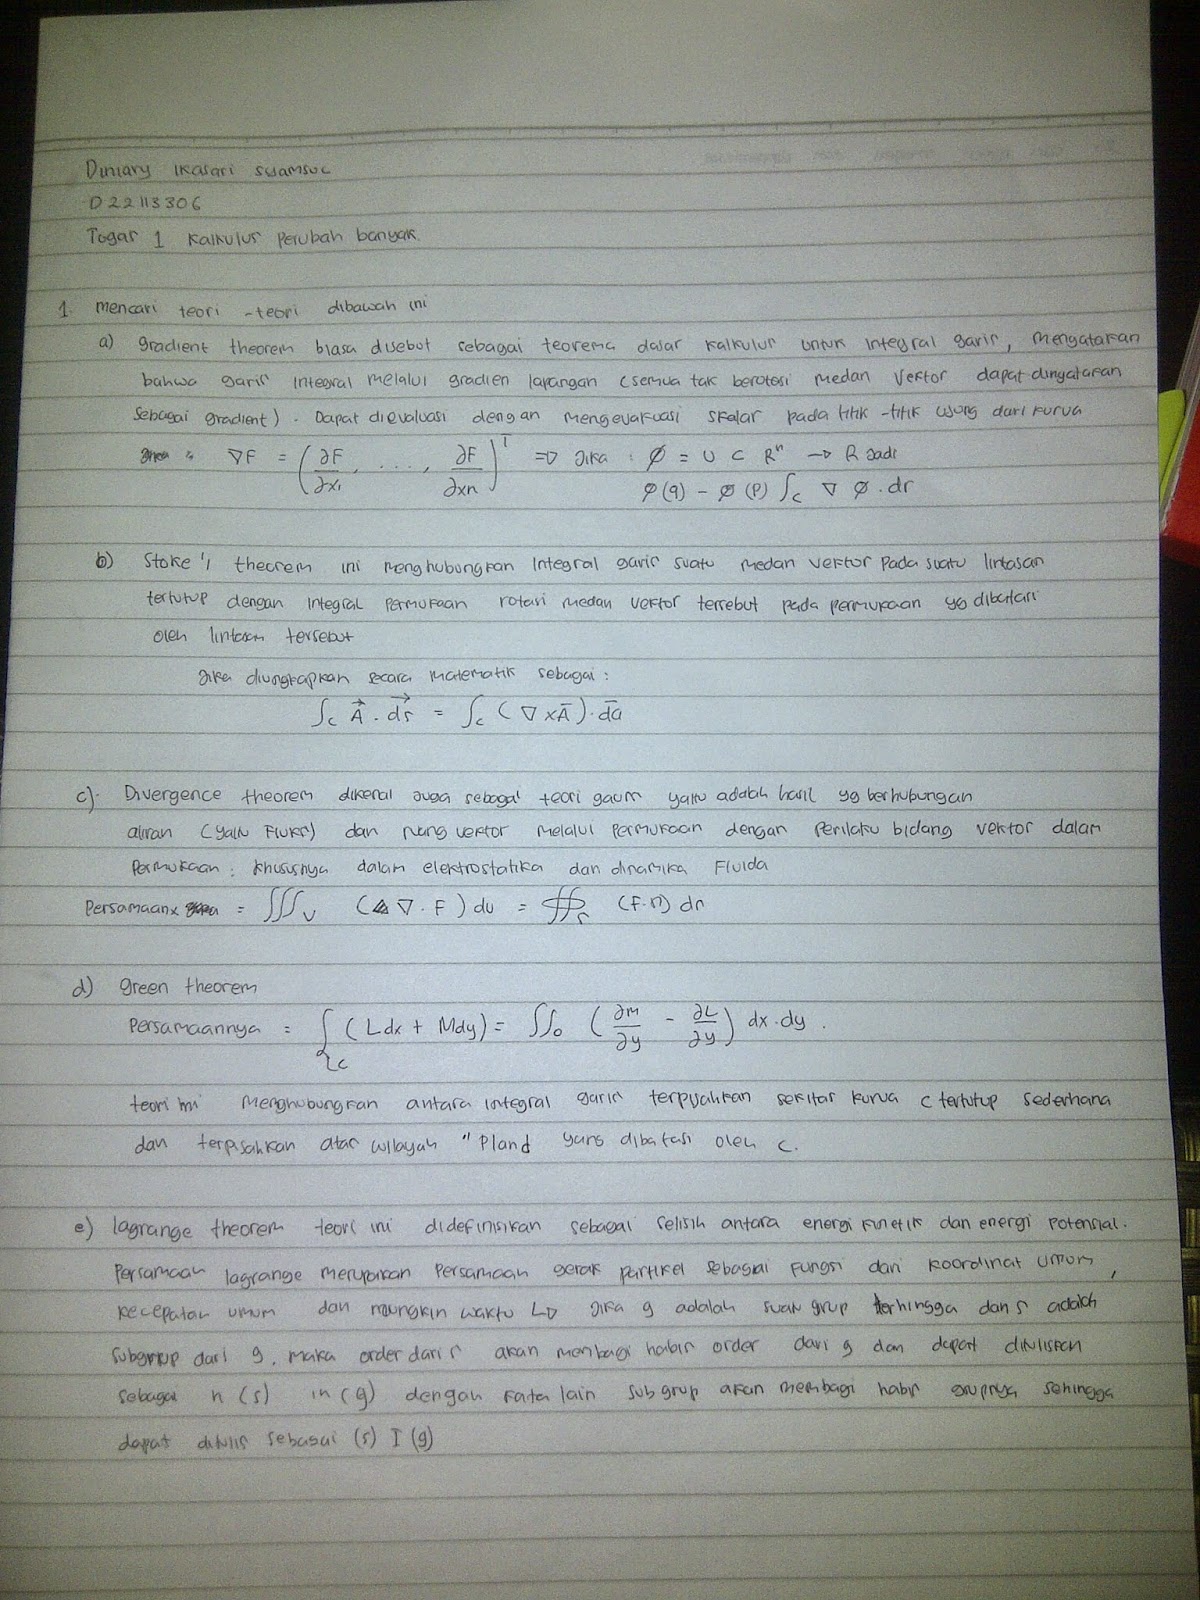 Diniary Ikasari Syamsuc
D22113306
Tugas 1 Kalkulus Perubah banyak.
1. mencari teori -teori dibawah ini
a) gradient theorem biasa disebut sebagai teorema dasar kalkulus untuk integral garis, mengatakan
bahwa garis integral melalui gradien lapangan (semua tak berotasi medan vektor dapat dinyatakan
sebagai gradient). Dapat dievaluasi dengan mengevakuasi skalar pada titik -titik ujung dari kurva
∇F = (∂F/∂x₁, ..., ∂F/∂xn)ᵀ => Jika : Ø = U ⊂ Rⁿ → R Jadi
φ(q) - Ø(p) ∫c ∇ Ø . dr
b) Stoke's theorem ini menghubungkan integral garis suatu medan vektor pada suatu lintasan
tertutup dengan integral permukaan rotasi medan vektor tersebut pada permukaan yg dibatasi
oleh lintasan tersebut
Jika diungkapkan secara matematik sebagai :
∫c A⃗ . ds⃗ = ∫c (∇ x A̅) . da̅
c). Divergence theorem dikenal juga sebagai teori gauss yaitu adalah hasil yg berhubungan
aliran (yaitu Fluks) dan ruang vektor melalui permukaan dengan perilaku bidang vektor dalam
Permukaan : khususnya dalam elektrostatika dan dinamika Fluida
Persamaanx = ∭v (∇ . F) dv = ∯s (F.n) ds
d) green theorem
Persamaannya = ∫c (Ldx + Mdy) = ∬D (∂m/∂y - ∂L/∂y) dx . dy .
teori ini menghubungkan antara integral garis terpisahkan sekitar kurva c tertutup sederhana
dan terpisahkan atas wilayah "Pland yang dibatasi oleh c.
e) lagrange theorem teori ini didefinisikan sebagai selisih antara energi kinetik dan energi potensial.
Persamaan lagrange merupakan persamaan gerak partikel sebagai fungsi dari koordinat umum,
kecepatan umum dan mungkin waktu L→ Jika g adalah suatu grup terhingga dan s adalah
subgrup dari g, maka order dari s akan membagi habis order dari g dan dapat dituliskan
sebagai n (s) in (g) dengan kata lain subgrup akan membagi habis grupnya sehingga
dapat ditulis sebagai (s) I (g)